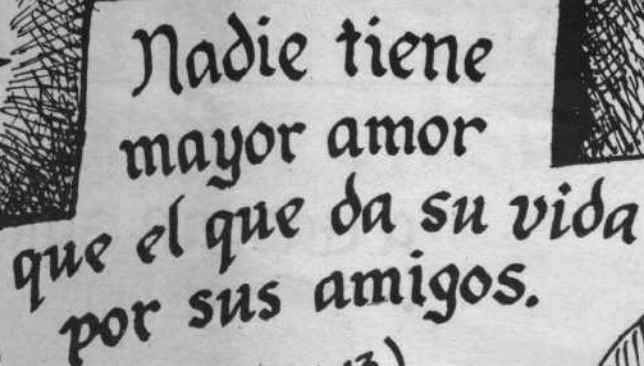 Nadie tiene
mayor amor
que el que da su vida
por sus amigos.
13)